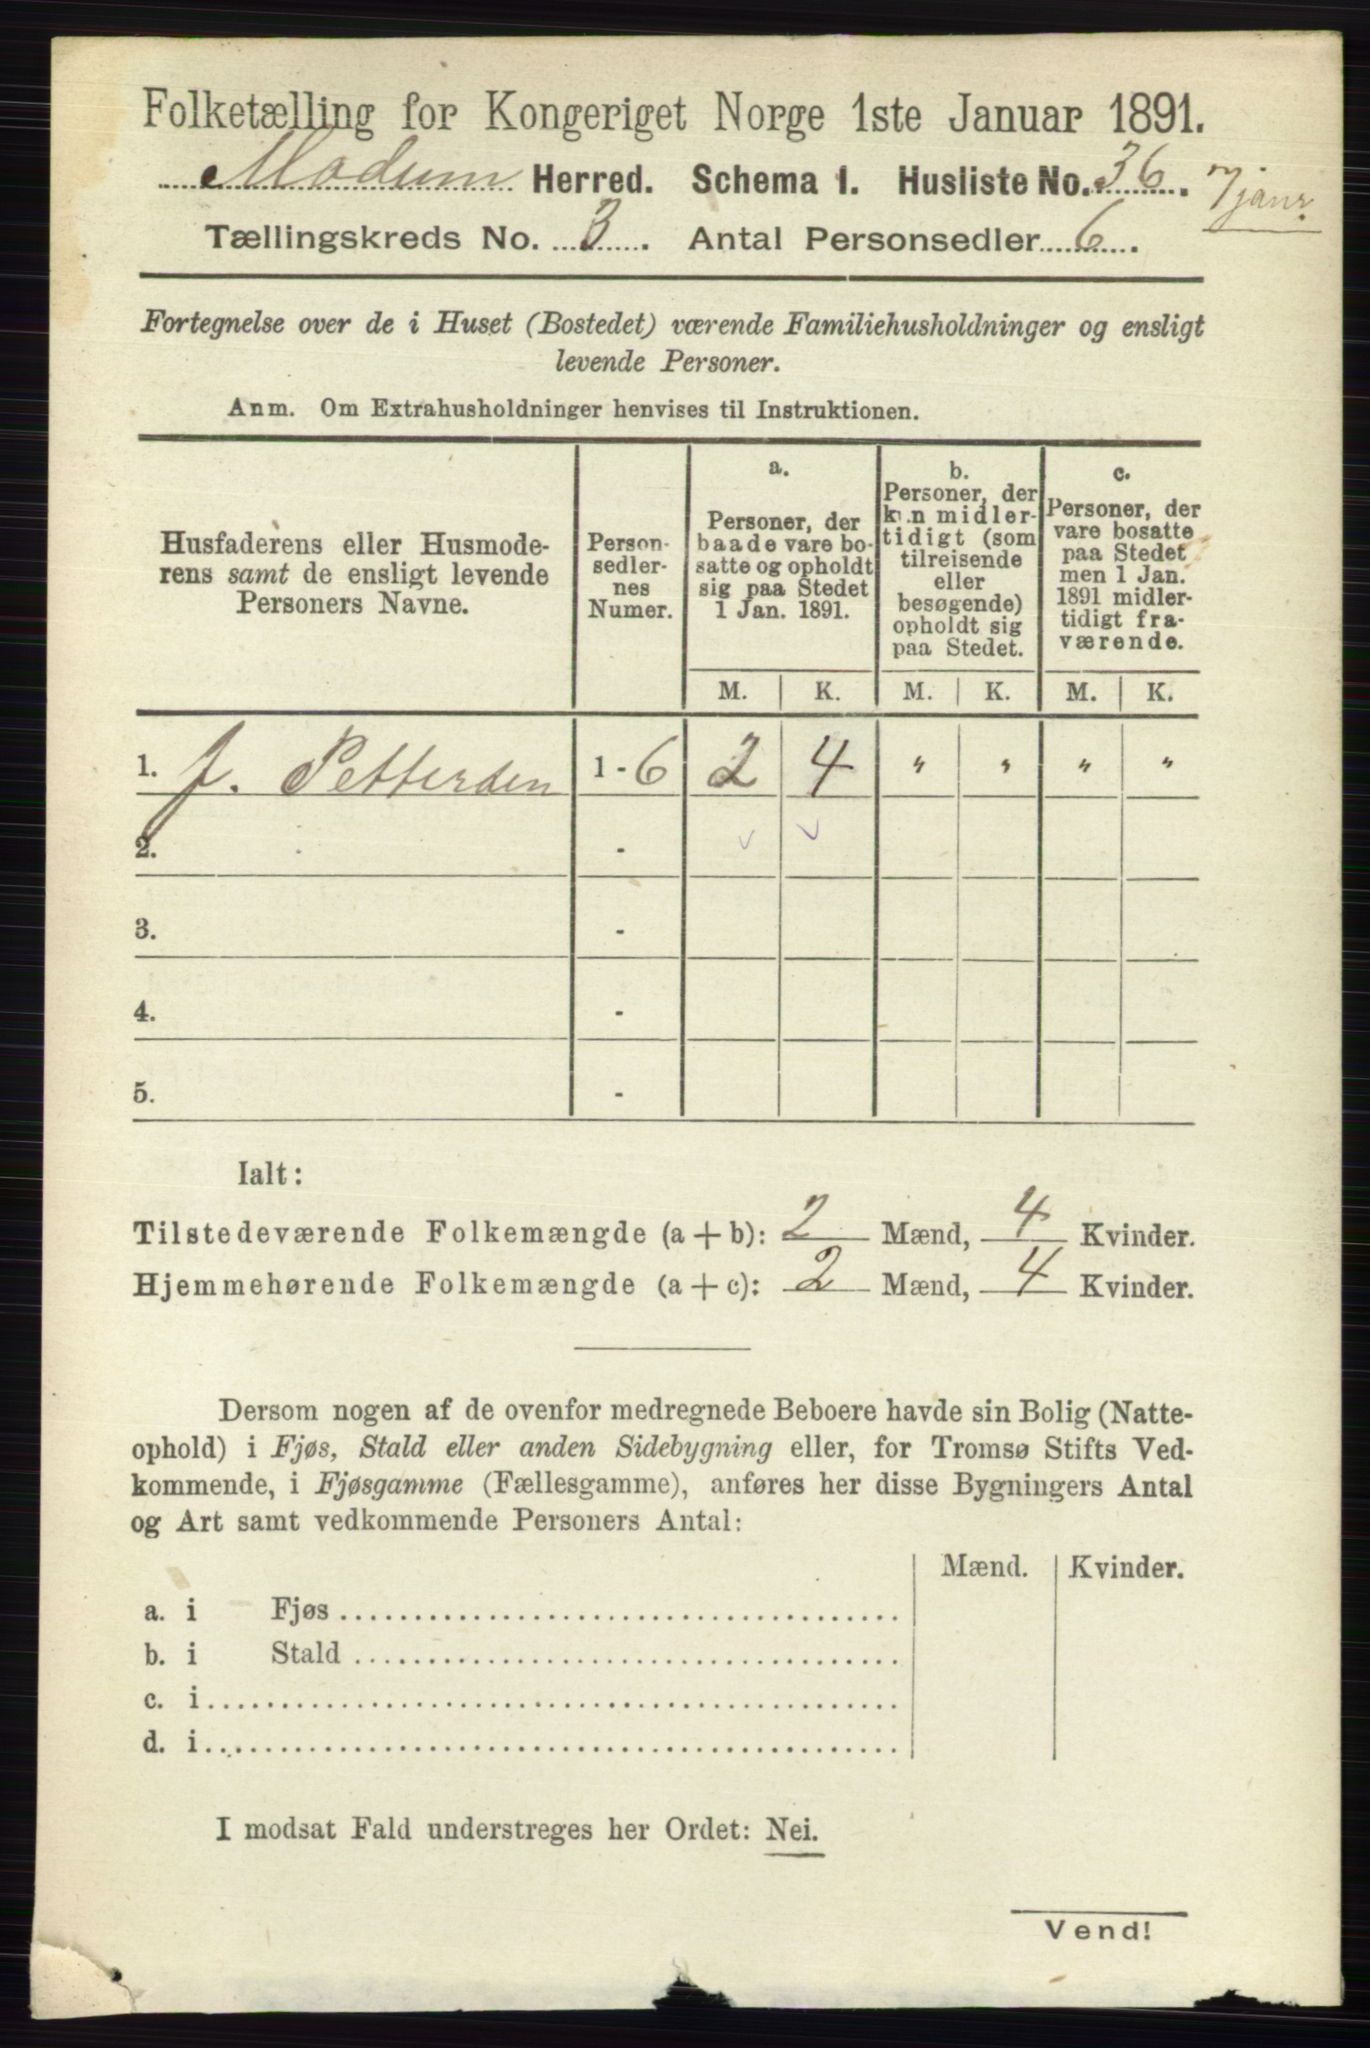 Folketælling for Kongeriget Norge 1ste Januar 1891.
Modum Herred. Schema 1. Husliste No. 36. 7 janr.
Tællingskreds No. 3. Antal Personsedler 6.
Fortegnelse over de i Huset (Bostedet) værende Familiehusholdninger og ensligt
levende Personer.
Anm. Om Extrahusholdninger henvises til Instruktionen.
Husfaderens eller Husmode-
rens samt de ensligt levende
Personers Navne.
Person-
sedler-
nes
Numer.
a.
Personer, der
baade vare bo-
satte og opholdt
sig paa Stedet
1 Jan. 1891.
b.
Personer, der
kun midler-
tidigt (som
tilreisende
eller
besøgende)
opholdt sig
paa Stedet.
c.
Personer, der
vare bosatte
paa Stedet
men 1 Jan.
1891 midler-
tidigt fra-
værende.
M. K. M. K. M. K.
1. J. Pettersen 1 - 6 2 4 " " " "
2. -
3. -
4. -
5. -
Ialt:
Tilstedeværende Folkemængde (a + b): 2 Mænd, 4 Kvinder.
Hjemmehørende Folkemængde (a + c): 2 Mænd, 4 Kvinder.
Dersom nogen af de ovenfor medregnede Beboere havde sin Bolig (Natte-
ophold) i Fjøs, Stald eller anden Sidebygning eller, for Tromsø Stifts Ved-
kommende, i Fjøsgamme (Fællesgamme), anføres her disse Bygningers Antal
og Art samt vedkommende Personers Antal:
Mænd. Kvinder.
a. i Fjøs
b. i Stald
c. i
d. i
I modsat Fald understreges her Ordet: Nei.
Vend!